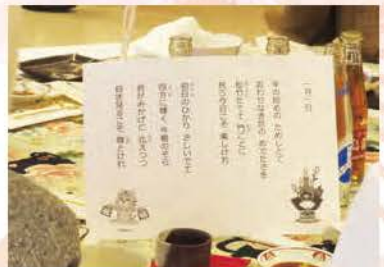 一月一日
年の始めの ためしとて
おわりなき世の めでたさを
松竹たてて 門ごとに
祝う今日こそ 楽しけれ
初日のひかり さしいでて
四方に輝く 今朝のそら
君がみかげに 比えつつ
仰ぎ見るこそ 尊とけれ